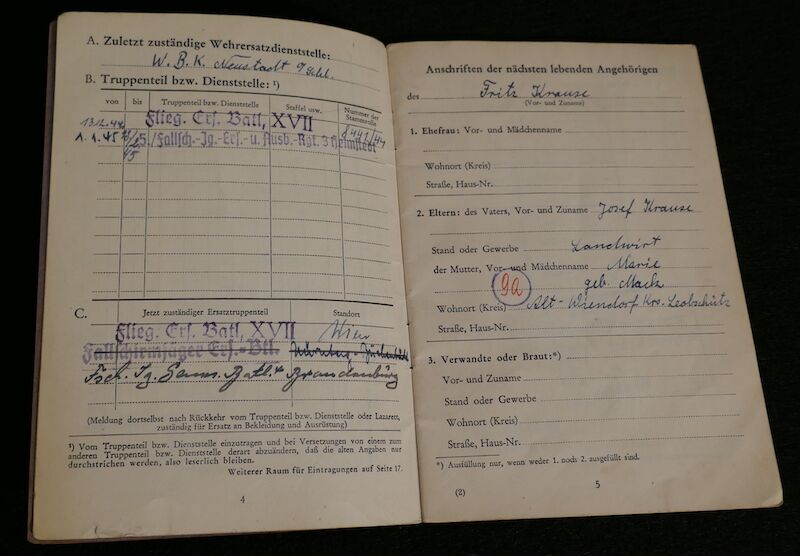 A. Zuletzt zuständige Wehrersatzdienststelle:
W. B. K. Neustadt O/Schl.
B. Truppenteil bzw. Dienststelle: ¹)
von bis Truppenteil bzw. Dienststelle Staffel usw. Nummer der Stammrolle
13.12.44 Flieg. Ers. Batl. XVII 8441/44
1.1.45 /Fallsch.-Jg.-Ers.-u. Ausb.-Rgt. 3 Helmstedt
C. Jetzt zuständiger Ersatztruppenteil Standort
Flieg. Ers. Batl. XVII Wien
Fallschirmjäger Ers.-Btl.
Fsch. Jg. Batl. Brandenburg
(Meldung dortselbst nach Rückkehr vom Truppenteil bzw. Dienststelle oder Lazarett,
zuständig für Ersatz an Bekleidung und Ausrüstung)
¹) Vom Truppenteil bzw. Dienststelle einzutragen und bei Versetzungen von einem zum
anderen Truppenteil bzw. Dienststelle derart abzuändern, daß die alten Angaben nur
durchstrichen werden, also leserlich bleiben.
Weiterer Raum für Eintragungen auf Seite 17.
4
Anschriften der nächsten lebenden Angehörigen
des Fritz Krause
(Vor- und Zuname)
1. Ehefrau: Vor- und Mädchenname
Wohnort (Kreis)
Straße, Haus-Nr.
2. Eltern: des Vaters, Vor- und Zuname Josef Krause
Stand oder Gewerbe Landwirt
der Mutter, Vor- und Mädchenname Marie
9a geb. Mach
Wohnort (Kreis) Alt-Wiendorf Krs. Leobschütz
Straße, Haus-Nr.
3. Verwandte oder Braut:*)
Vor- und Zuname
Stand oder Gewerbe
Wohnort (Kreis)
Straße, Haus-Nr.
*) Ausfüllung nur, wenn weder 1. noch 2. ausgefüllt sind.
(2) 5